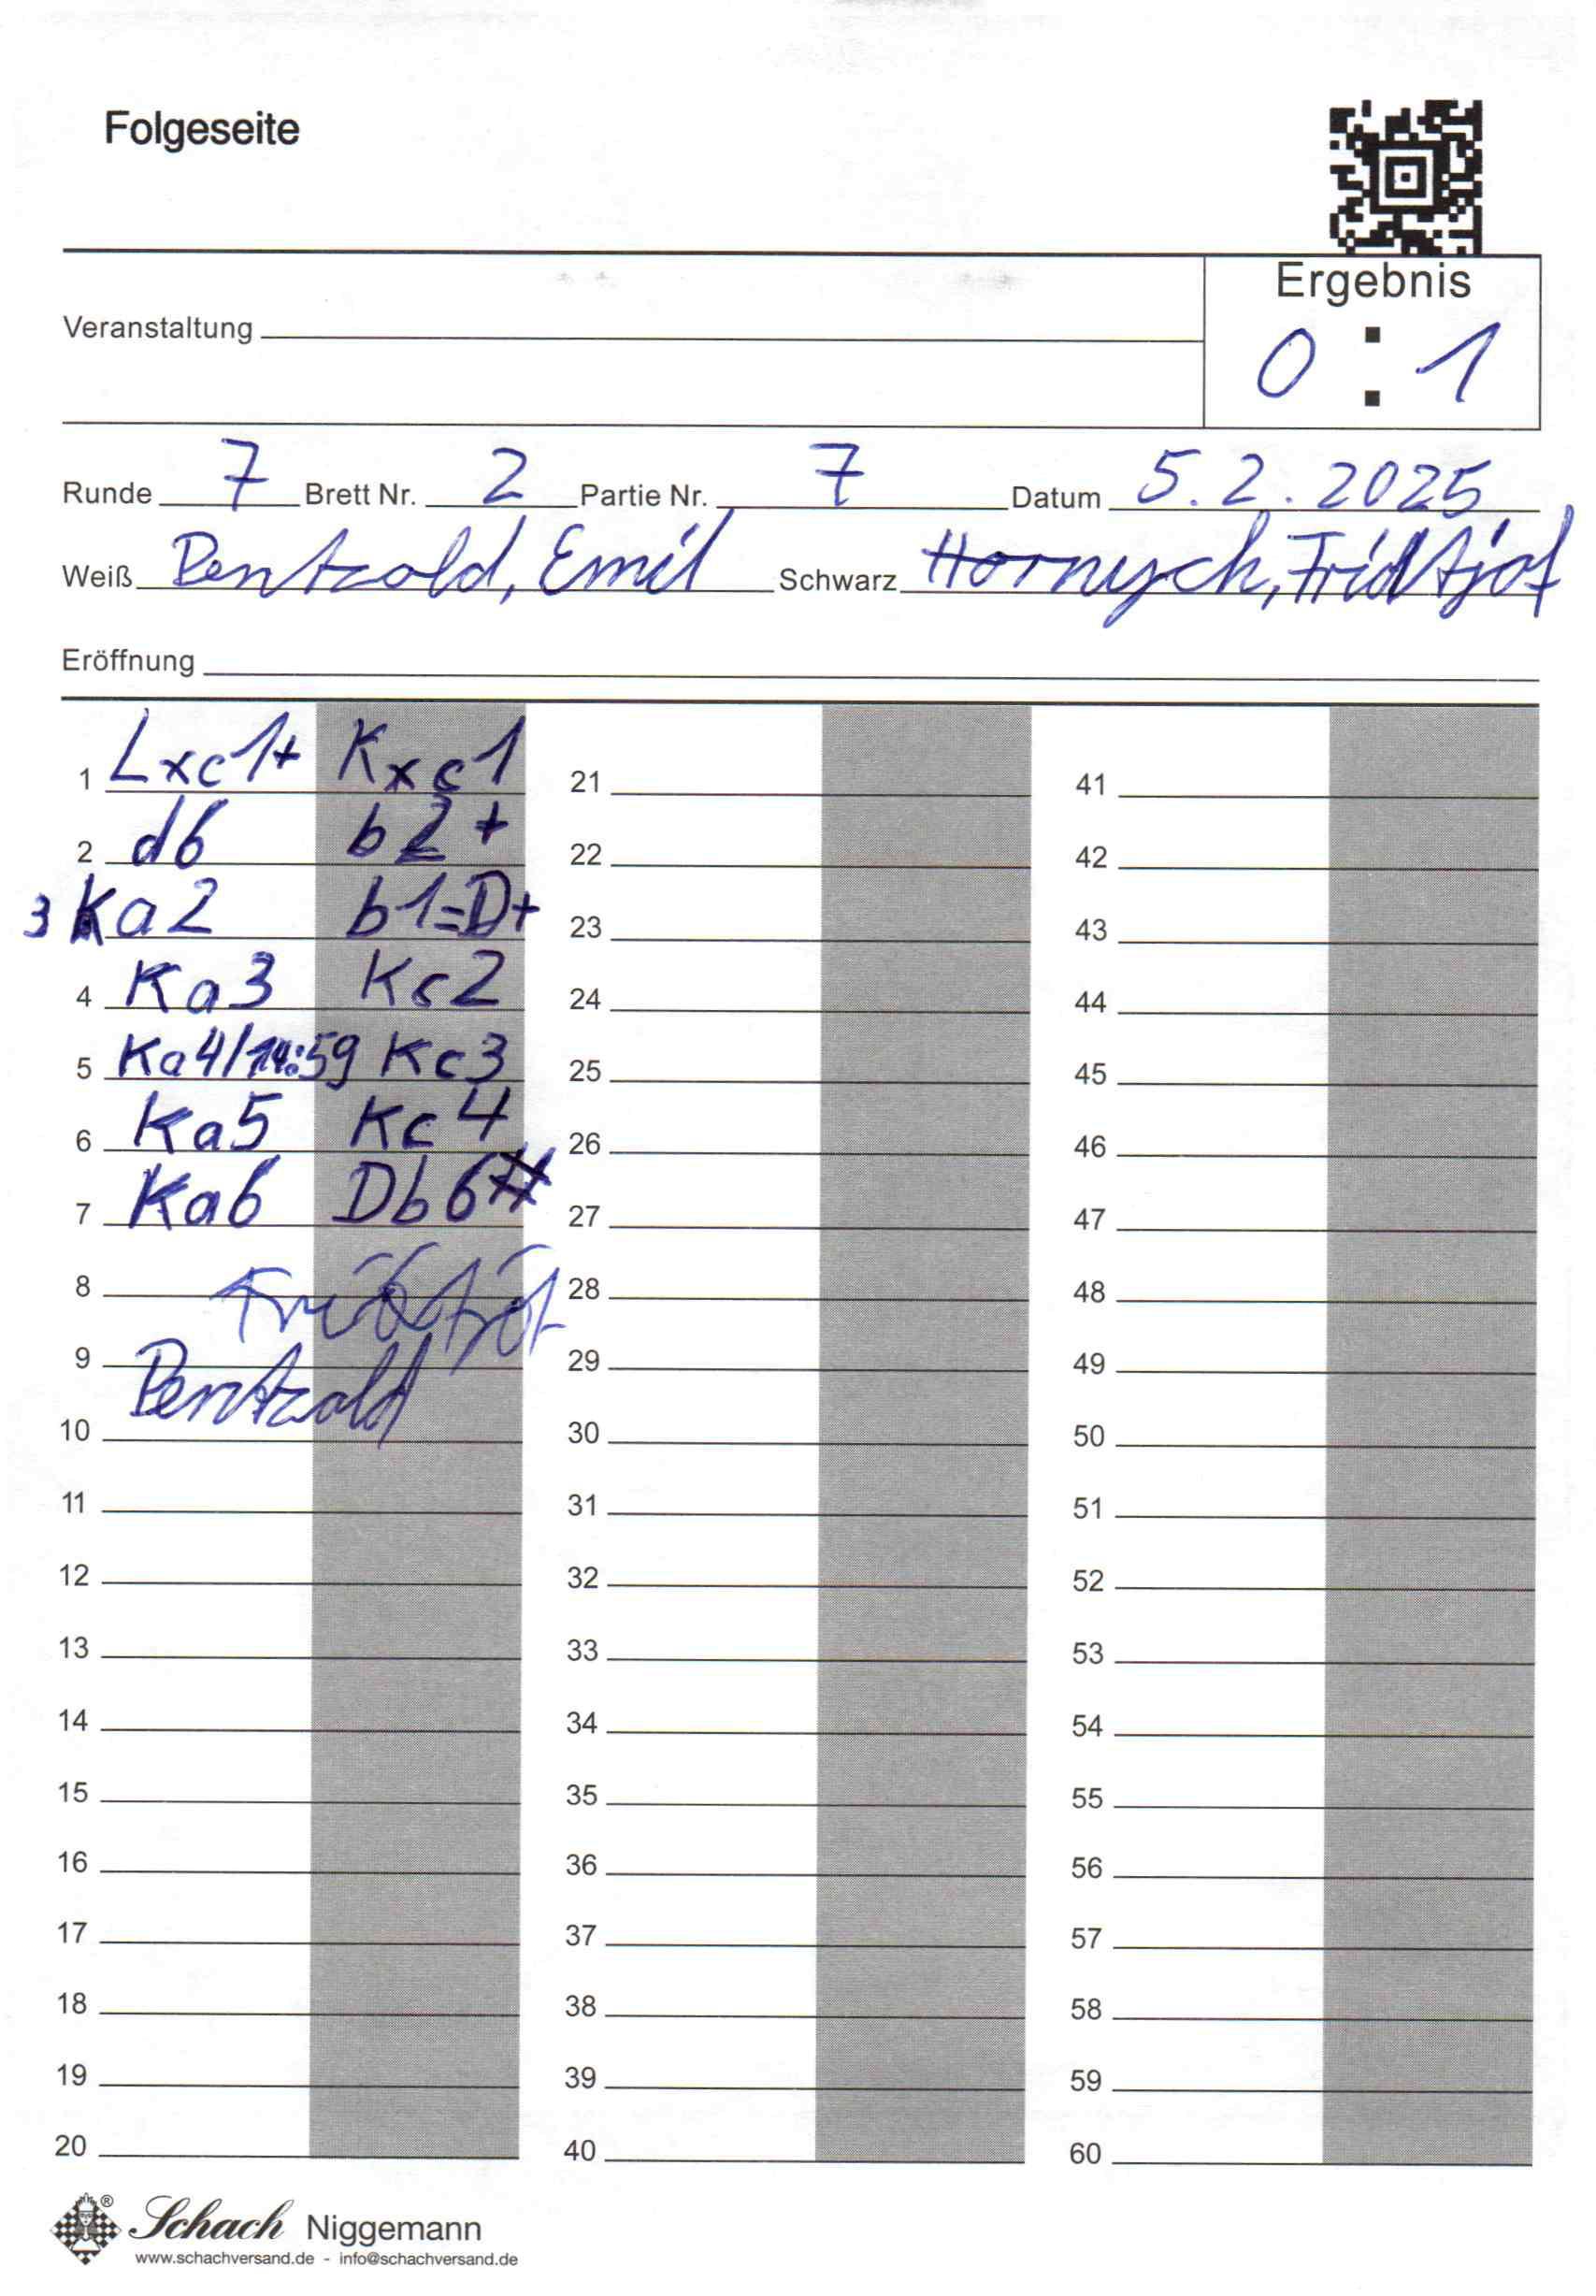 Folgeseite
Ergebnis
0 : 1
Veranstaltung
Runde 7 Brett Nr. 2 Partie Nr. 7 Datum 5.2.2025
Weiß Pentzold, Emil Schwarz Hornych, Fridtjof
Eröffnung
1 Lxc1+ Kxc1 21 41
2 d6 b2+ 22 42
3 Ka2 b1=D+ 23 43
4 Ka3 Kc2 24 44
5 Ka4/14:59 Kc3 25 45
6 Ka5 Kc4 26 46
7 Ka6 Db6# 27 47
8 Fridtjof 28 48
9 Pentzold 29 49
10 30 50
11 31 51
12 32 52
13 33 53
14 34 54
15 35 55
16 36 56
17 37 57
18 38 58
19 39 59
20 40 60
® Schach Niggemann
www.schachversand.de - info@schachversand.de